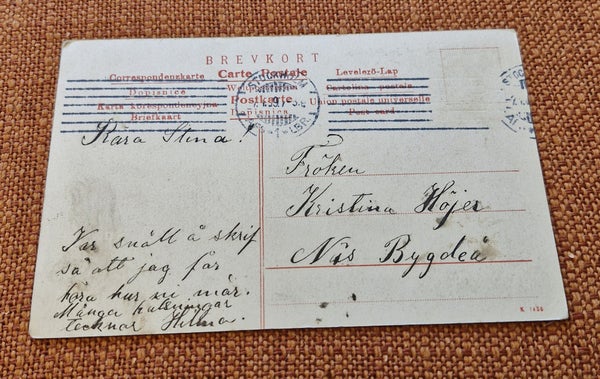 BREVKORT
Correspondenzkarte
Carte Postale
Levelező-Lap
Dopisnice
Cartolina postale
Karta korespondencyjna
Postkarte
Union postale universelle
Briefkaart
Dopisnica
Post card
Kära Stina!
Var snäll å skrif
så att jag får
höra hur ni mår.
Många hälsningar
tecknar Hilma.
Fröken
Kristina Höjer
Näs Bygdeå